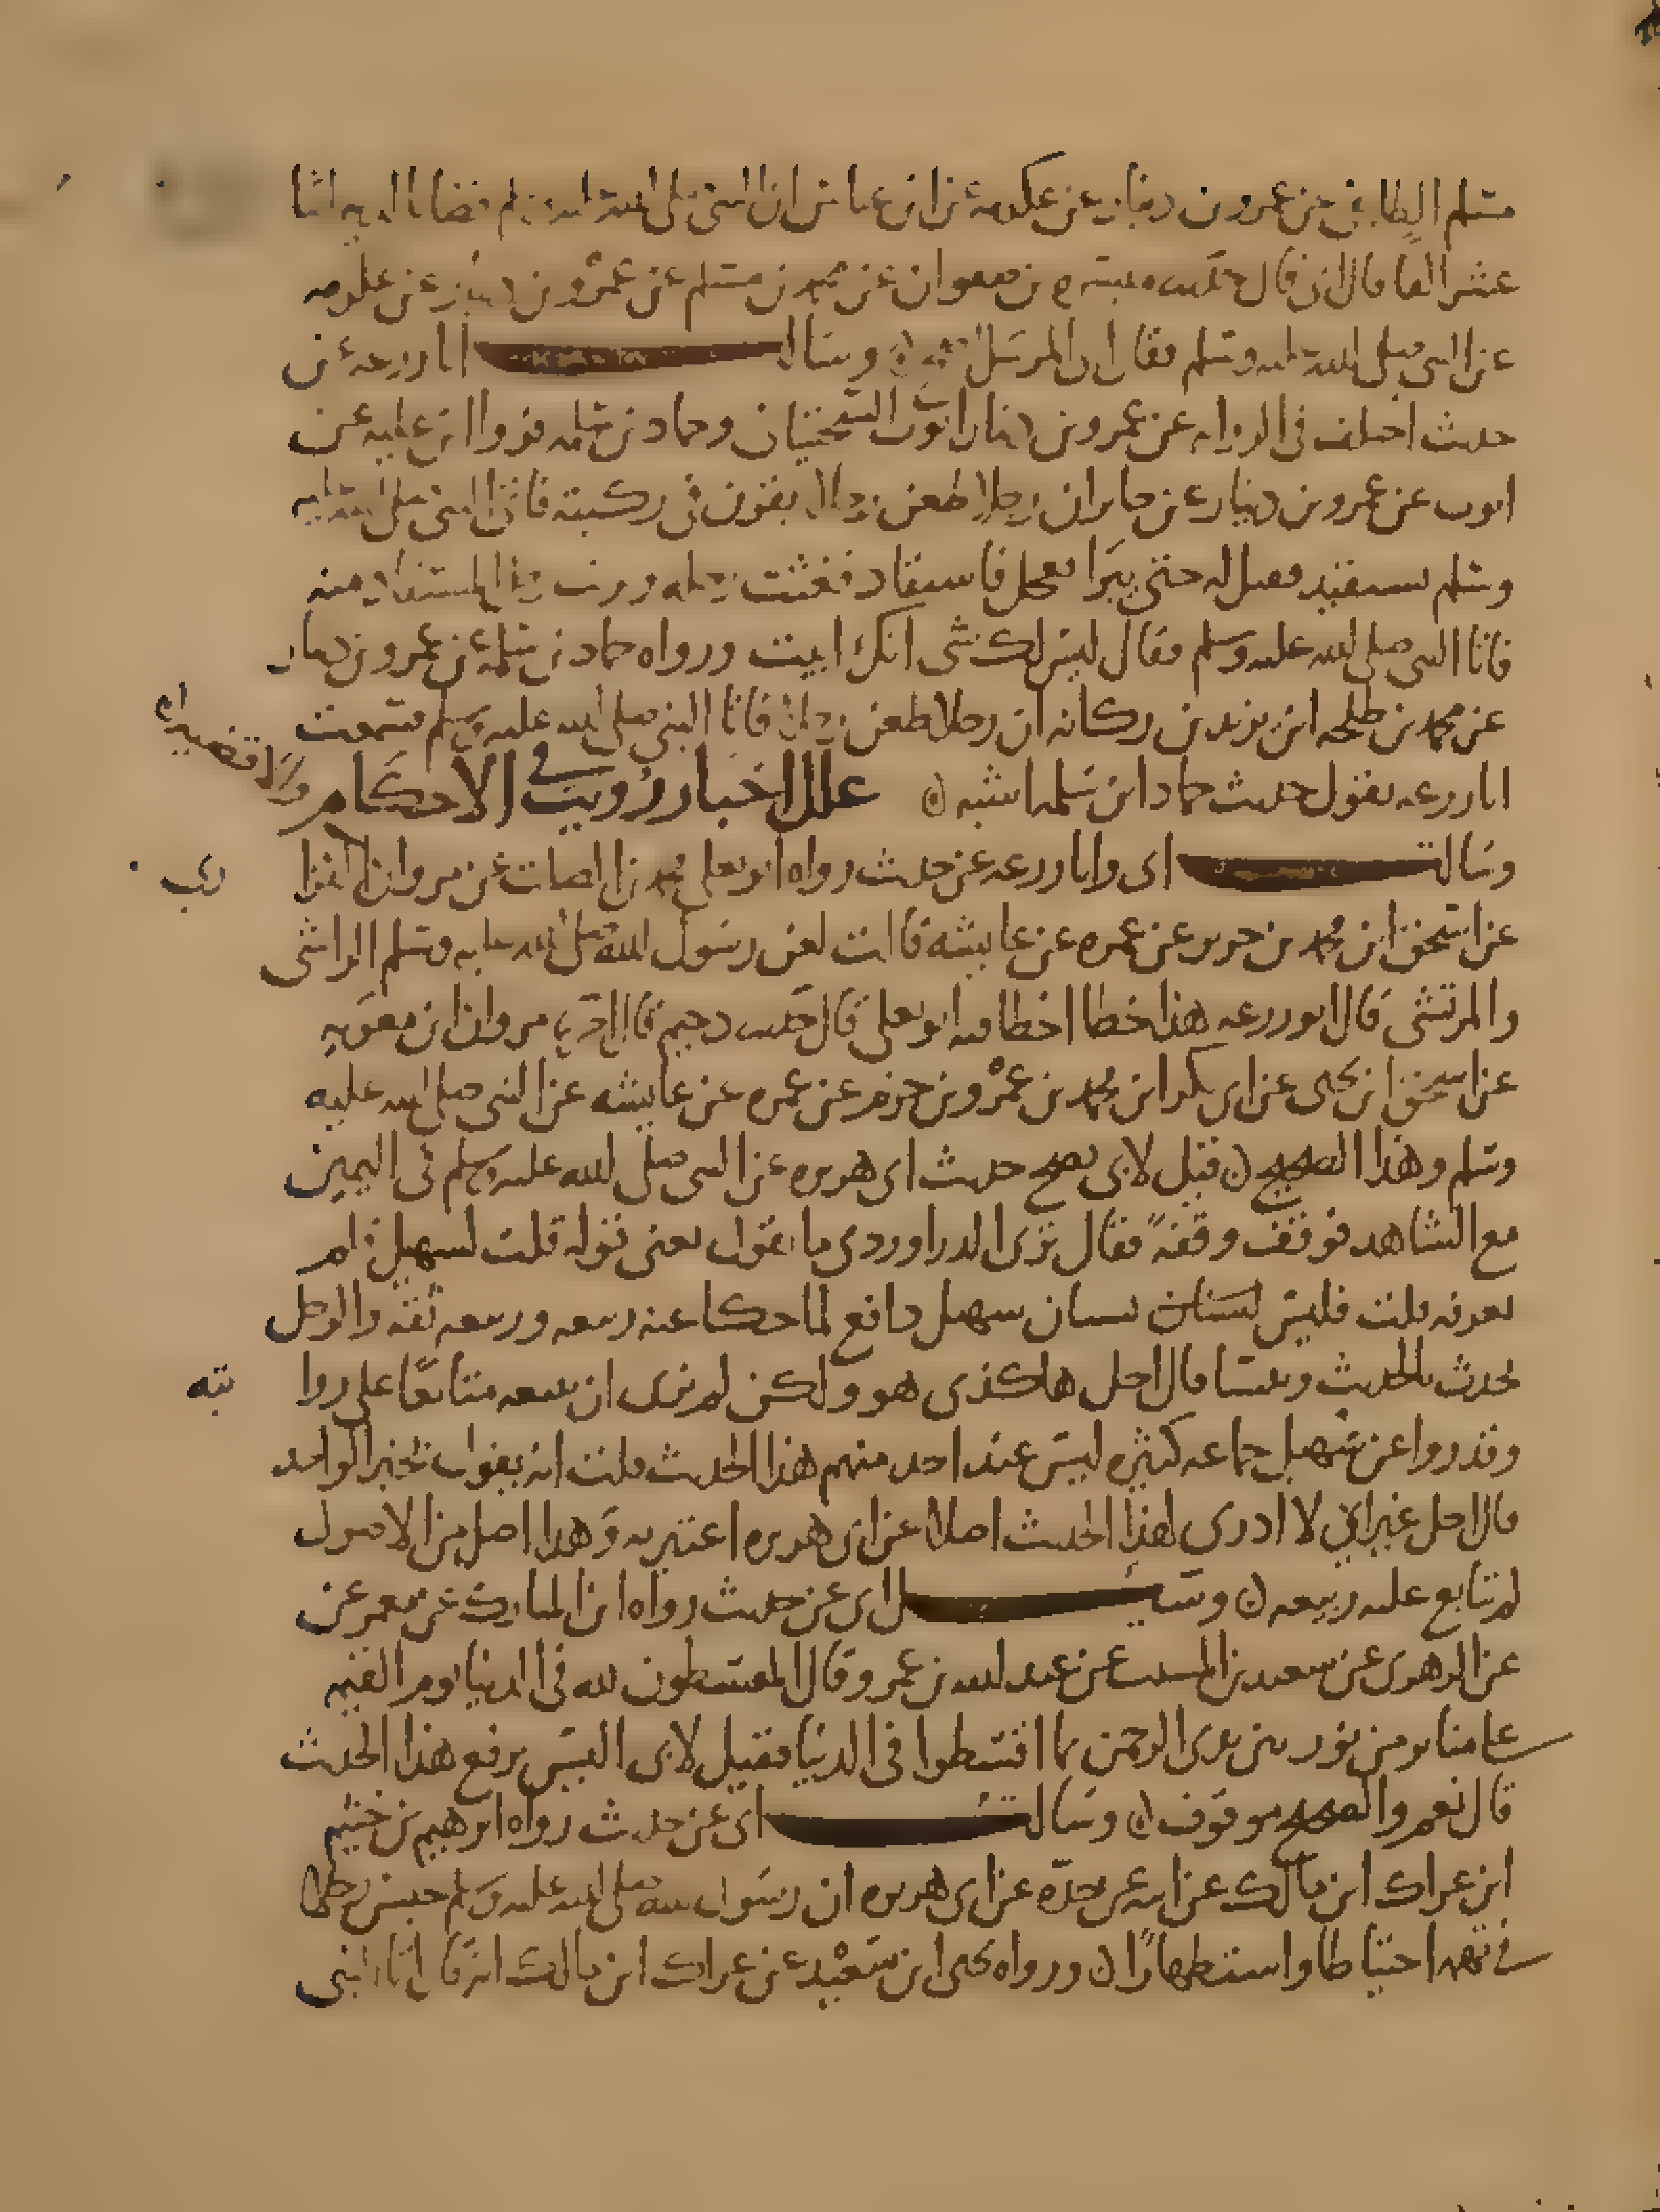 مسلم الطايفي عن عمرو بن دينار عن عكرمة عن ابن عباس ان النبي صلى الله عليه وسلم قضا بالديه اثنا
عشر الفا قال ابي قال حدثنا به صفوان عن محمد بن مسلم عن عمرو بن دينار عن عكرمه
عن النبي صلى الله عليه وسلم فقال ابي المرسل وسالت ابا زرعه عن
حديث اختلف في الروايه عن عمرو بن دينار ايوب السختياني وحماد بن سلمه فروا ابن عليه عن
ايوب عن عمرو بن دينار عن جابر ان رجلا طعن رجلا بقرن في ركبته فاتا النبي صلى الله عليه
وسلم يستقيد فقيل له حتى يبرا فعجل فاستقاد فعثت رجله وبرئت رجل المستقاد منه
فاتا النبي صلى الله عليه وسلم فقال ليس لك شي انك ابيت ورواه حماد بن سلمه عن عمرو بن دينار
عن محمد بن طلحه ابن يزيد بن ركانه ان رجلا طعن رجلا فاتا النبي صلى الله عليه وسلم فسمعت
ابا زرعه يقول حديث حماد ابن سلمه اشبه علل اخبار رويت في الاحكام والاقضيه
وسالت ابي وابا زرعه عن حديث رواه ابو يعلى محمد بن الصلت عن مروان الفزا ري
عن اسحق ابن محمد بن جرير عن عمره عن عايشه قالت لعن رسول الله صلى الله عليه وسلم الراشي
والمرتشي قال ابو زرعه هذا خطا اخطا فيه ابو يعلى قال حدثنا دحيم قال مروان ابن معويه
عن اسحق ابن يحيى عن ابي بكر ابن محمد بن عمرو بن حزم عن عمره عن عايشه عن النبي صلى الله عليه
وسلم وهذا الصحيح قيل لابي يصح حديث ابي هريره عن النبي صلى الله عليه وسلم في اليمين
مع الشاهد فوقف وقفة فقال ترى الدراوردي ما يقول يعني قوله قلت لسهيل فلم
يعرفه قلت فليس نسيان سهيل دافع لما حكا عنه ربيعه وربيعه ثقه والرجل
يحدث بالحديث وينسا قال اجل هاكذى هو ولكن لم نرى ان يتبعه متابعا على روا يته
وقد روا عن سهيل جماعه كثيره ليس عند احد منهم هذا الحديث قلت انه يقول بخبر الواحد
قال اجل غير اني لا ادري لهذا الحديث اصلا عن ابي هريره اعتبر به وهذا اصل من الاصول
لم يتابع عليه ربيعه وسيل ابي عن حديث رواه ابن المبارك عن معمر عن
عن الزهري عن سعيد بن المسيب عن عبد الله بن عمرو قال المقسطون لله في الدنيا يوم القيمه
على منابر من نور بين يدى الرحمن بما اقسطوا في الدنيا فقيل لابي اليس يرفع هذا الحديث
قال نعم والصحيح موقوف وسالت ابي عن حديث رواه ابرهيم بن خثيم
ابن عراك ابن مالك عن ابيه عن جده عن ابي هريره ان رسول الله صلى الله عليه وسلم حبس رجلا
في تهمه احتياطا واستظهارا ورواه يحيى ابن سعيد عن عراك ابن مالك انه قال اتا النبي